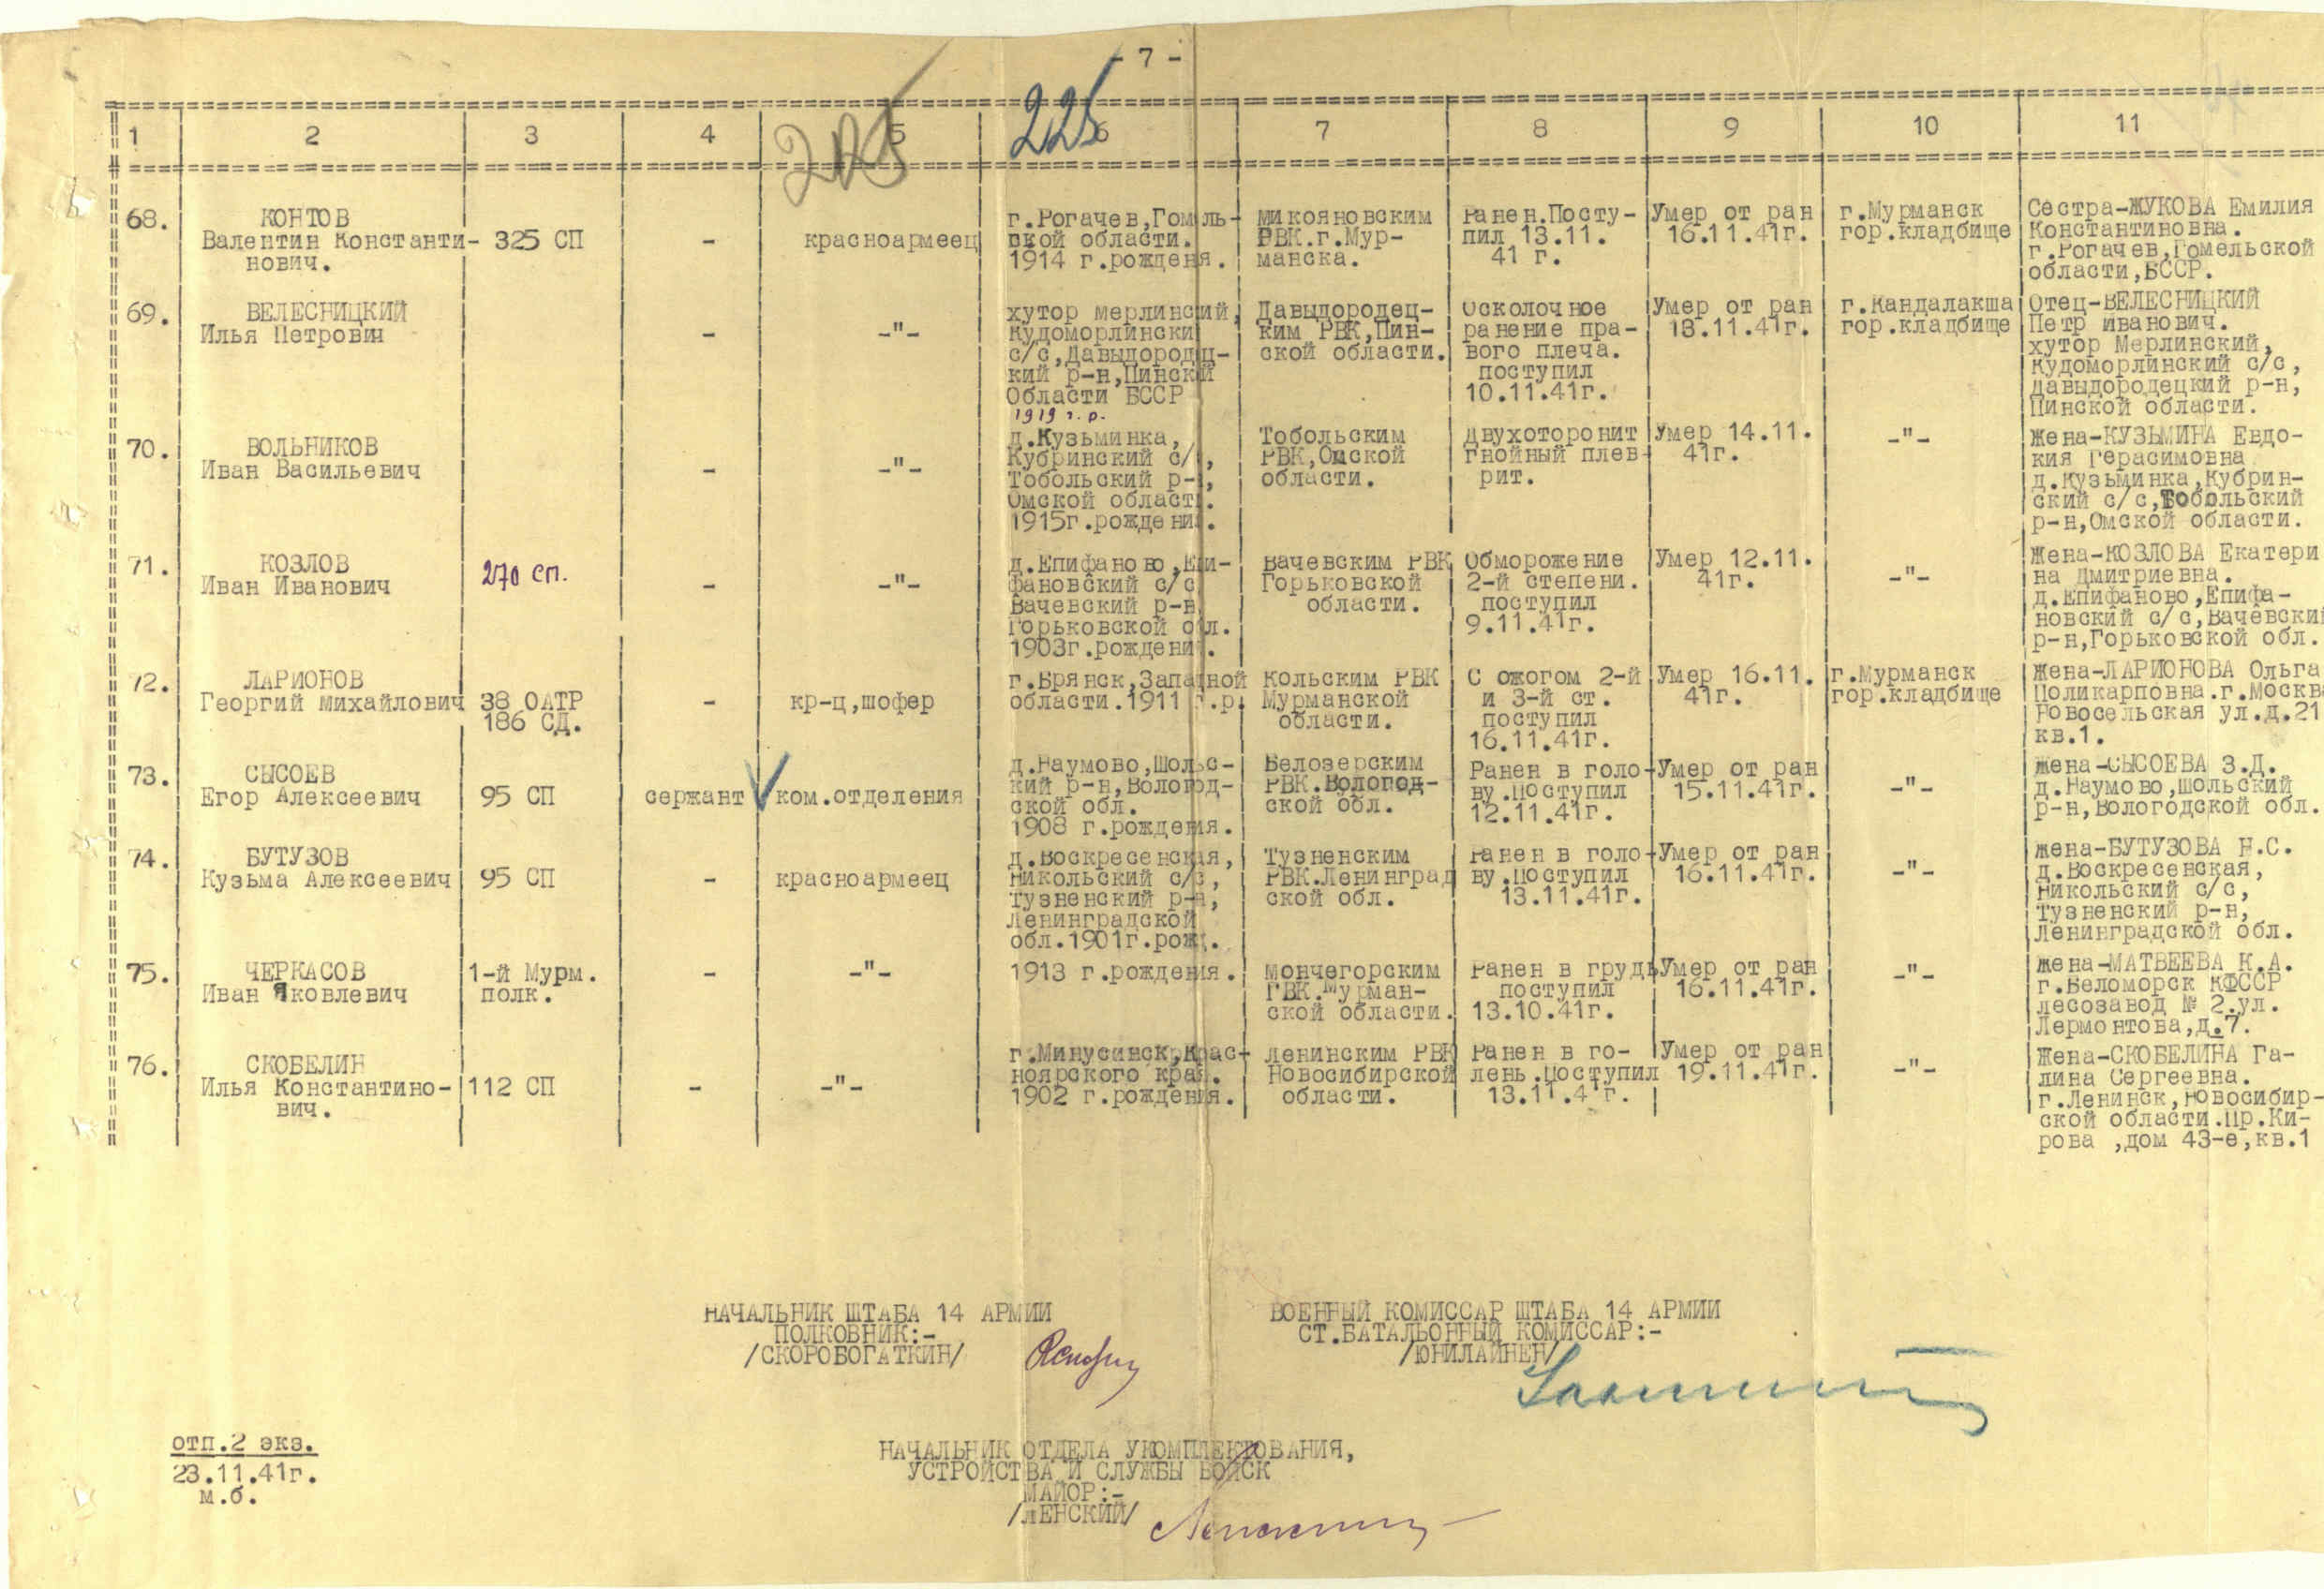 - 7 -
225
1 2 3 4 5 6 7 8 9 10 11
68. КОНТОВ
Валентин Константи-
нович.
325 СП
-
красноармеец
г.Рогачев,Гомель-
ской области.
1914 г.рожденя.
Микояновским
РВК.г.Мур-
манска.
Ранен.Посту-
пил 13.11.
41 г.
Умер от ран
16.11.41г.
г.Мурманск
гор.кладбище
Сестра-ЖУКОВА Емилия
Константиновна.
г.Рогачев,Гомельской
области,БССР.
69. ВЕЛЕСНИЦКИЙ
Илья Петрович
-
-"-
хутор мерлинский,
Кудоморлински
с/с,Давыдородец-
кий р-н,Пинский
Области БССР
1919 г.р.
Давыдородец-
ким РВК,Пин-
ской области.
Осколочное
ранение пра-
вого плеча.
поступил
10.11.41г.
Умер от ран
13.11.41г.
г.Кандалакша
гор.кладбище
Отец-ВЕЛЕСНИЦКИЙ
Петр Иванович.
хутор Мерлинский,
Кудоморлинский с/с,
Давыдородецкий р-н,
Пинской области.
70. ВОЛЬНИКОВ
Иван Васильевич
-
-"-
д.Кузьминка,
Кубринский с/с,
Тобольский р-н,
Омской области.
1915г.рождения.
Тобольским
РВК,Омской
области.
Двухоторонит
гнойный плев-
рит.
Умер 14.11.
41г.
-"-
Жена-КУЗЬМИНА Евдо-
кия Герасимовна
д.Кузьминка,Кубрин-
ский с/с,Тобольский
р-н,Омской области.
71. КОЗЛОВ
Иван Иванович
270 сп.
-
-"-
д.Епифаново,Епи-
фановский с/с
Вачевский р-н
Горьковской обл.
1903г.рождения.
Вачевским РВК
Горьковской
области.
Обморожение
2-й степени.
поступил
9.11.41г.
Умер 12.11.
41г.
-"-
Жена-КОЗЛОВА Екатери
на Дмитриевна.
д.Епифаново,Епифа-
новский с/с,Вачевский
р-н,Горьковской обл.
72. ЛАРИОНОВ
Георгий Михайлович
38 ОАТР
186 СД.
-
кр-ц,шофер
г.Брянск,Западной
области.1911 г.р.
Кольским РВК
Мурманской
области.
С ожогом 2-й
и 3-й ст.
поступил
16.11.41г.
Умер 16.11.
41г.
г.Мурманск
гор.кладбище
Жена-ЛАРИОНОВА Ольга
Поликарповна.г.Москва
Новосельская ул.д.21
кв.1.
73. СЫСОЕВ
Егор Алексеевич
95 СП
сержант
ком.отделения
д.Наумово,Шольс-
кий р-н,Вологод-
ской обл.
1908 г.рождения.
Белозерским
РВК.Вологод-
ской обл.
Ранен в голо-
ву.поступил
12.11.41г.
Умер от ран
15.11.41г.
-"-
Жена-СЫСОЕВА З.Д.
д.Наумово,Шольский
р-н,Вологодской обл.
74. БУТУЗОВ
Кузьма Алексеевич
95 СП
-
красноармеец
д.Воскресенская,
Никольский с/с,
Тузненский р-н,
Ленинградской
обл.1901г.рожд.
Тузненским
РВК.Ленинград
ской обл.
Ранен в голо-
ву.поступил
13.11.41г.
Умер от ран
16.11.41г.
-"-
Жена-БУТУЗОВА Н.С.
д.Воскресенская,
Никольский с/с,
Тузненский р-н,
Ленинградской обл.
75. ЧЕРКАСОВ
Иван Яковлевич
1-й Мурм.
полк.
-
-"-
1913 г.рождения.
Мончегорским
ГВК.Мурман-
ской области.
Ранен в грудь
поступил
13.10.41г.
Умер от ран
16.11.41г.
-"-
Жена-МАТВЕЕВА К.А.
г.Беломорск КФССР
лесозавод № 2.ул.
Лермонтова,д.7.
76. СКОБЕЛИН
Илья Константино-
вич.
112 СП
-
-"-
г.Минусинск,Крас-
ноярского края.
1902 г.рождения.
Ленинским РВК
Новосибирской
области.
Ранен в го-
лень.поступил
13.11.41г.
Умер от ран
19.11.41г.
-"-
Жена-СКОБЕЛИНА Га-
лина Сергеевна.
г.Ленинск,Новосибир-
ской области.Пр.Ки-
рова ,дом 43-е,кв.1
НАЧАЛЬНИК ШТАБА 14 АРМИИ
ПОЛКОВНИК:-
/СКОРОБОГАТКИН/
ВОЕННЫЙ КОМИССАР ШТАБА 14 АРМИИ
СТ.БАТАЛЬОННЫЙ КОМИССАР:-
/ЮНИЛАЙНЕН/
НАЧАЛЬНИК ОТДЕЛА УКОМПЛЕКТОВАНИЯ,
УСТРОЙСТВА И СЛУЖБЫ ВОЙСК
МАЙОР:-
/ЛЕНСКИЙ/
отп.2 экз.
23.11.41г.
м.б.